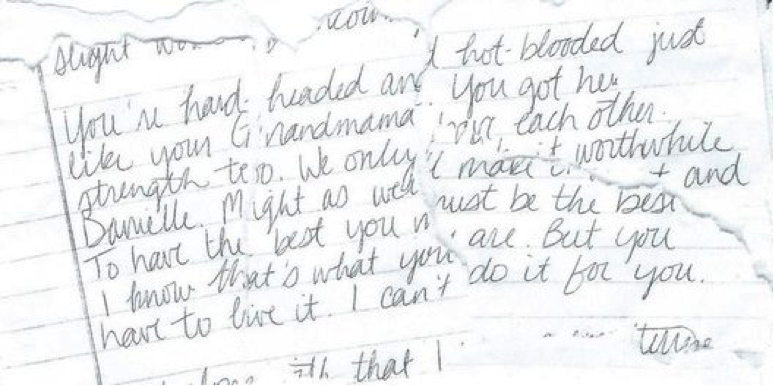 slight
You're hard-headed and hot-blooded just
like your Grandmama. You got her
strength too. We only got each other
Danielle. Might as well make it worthwhile
To have the best you must be the best and
I know that's what you are. But you
have to live it. I can't do it for you.
that I